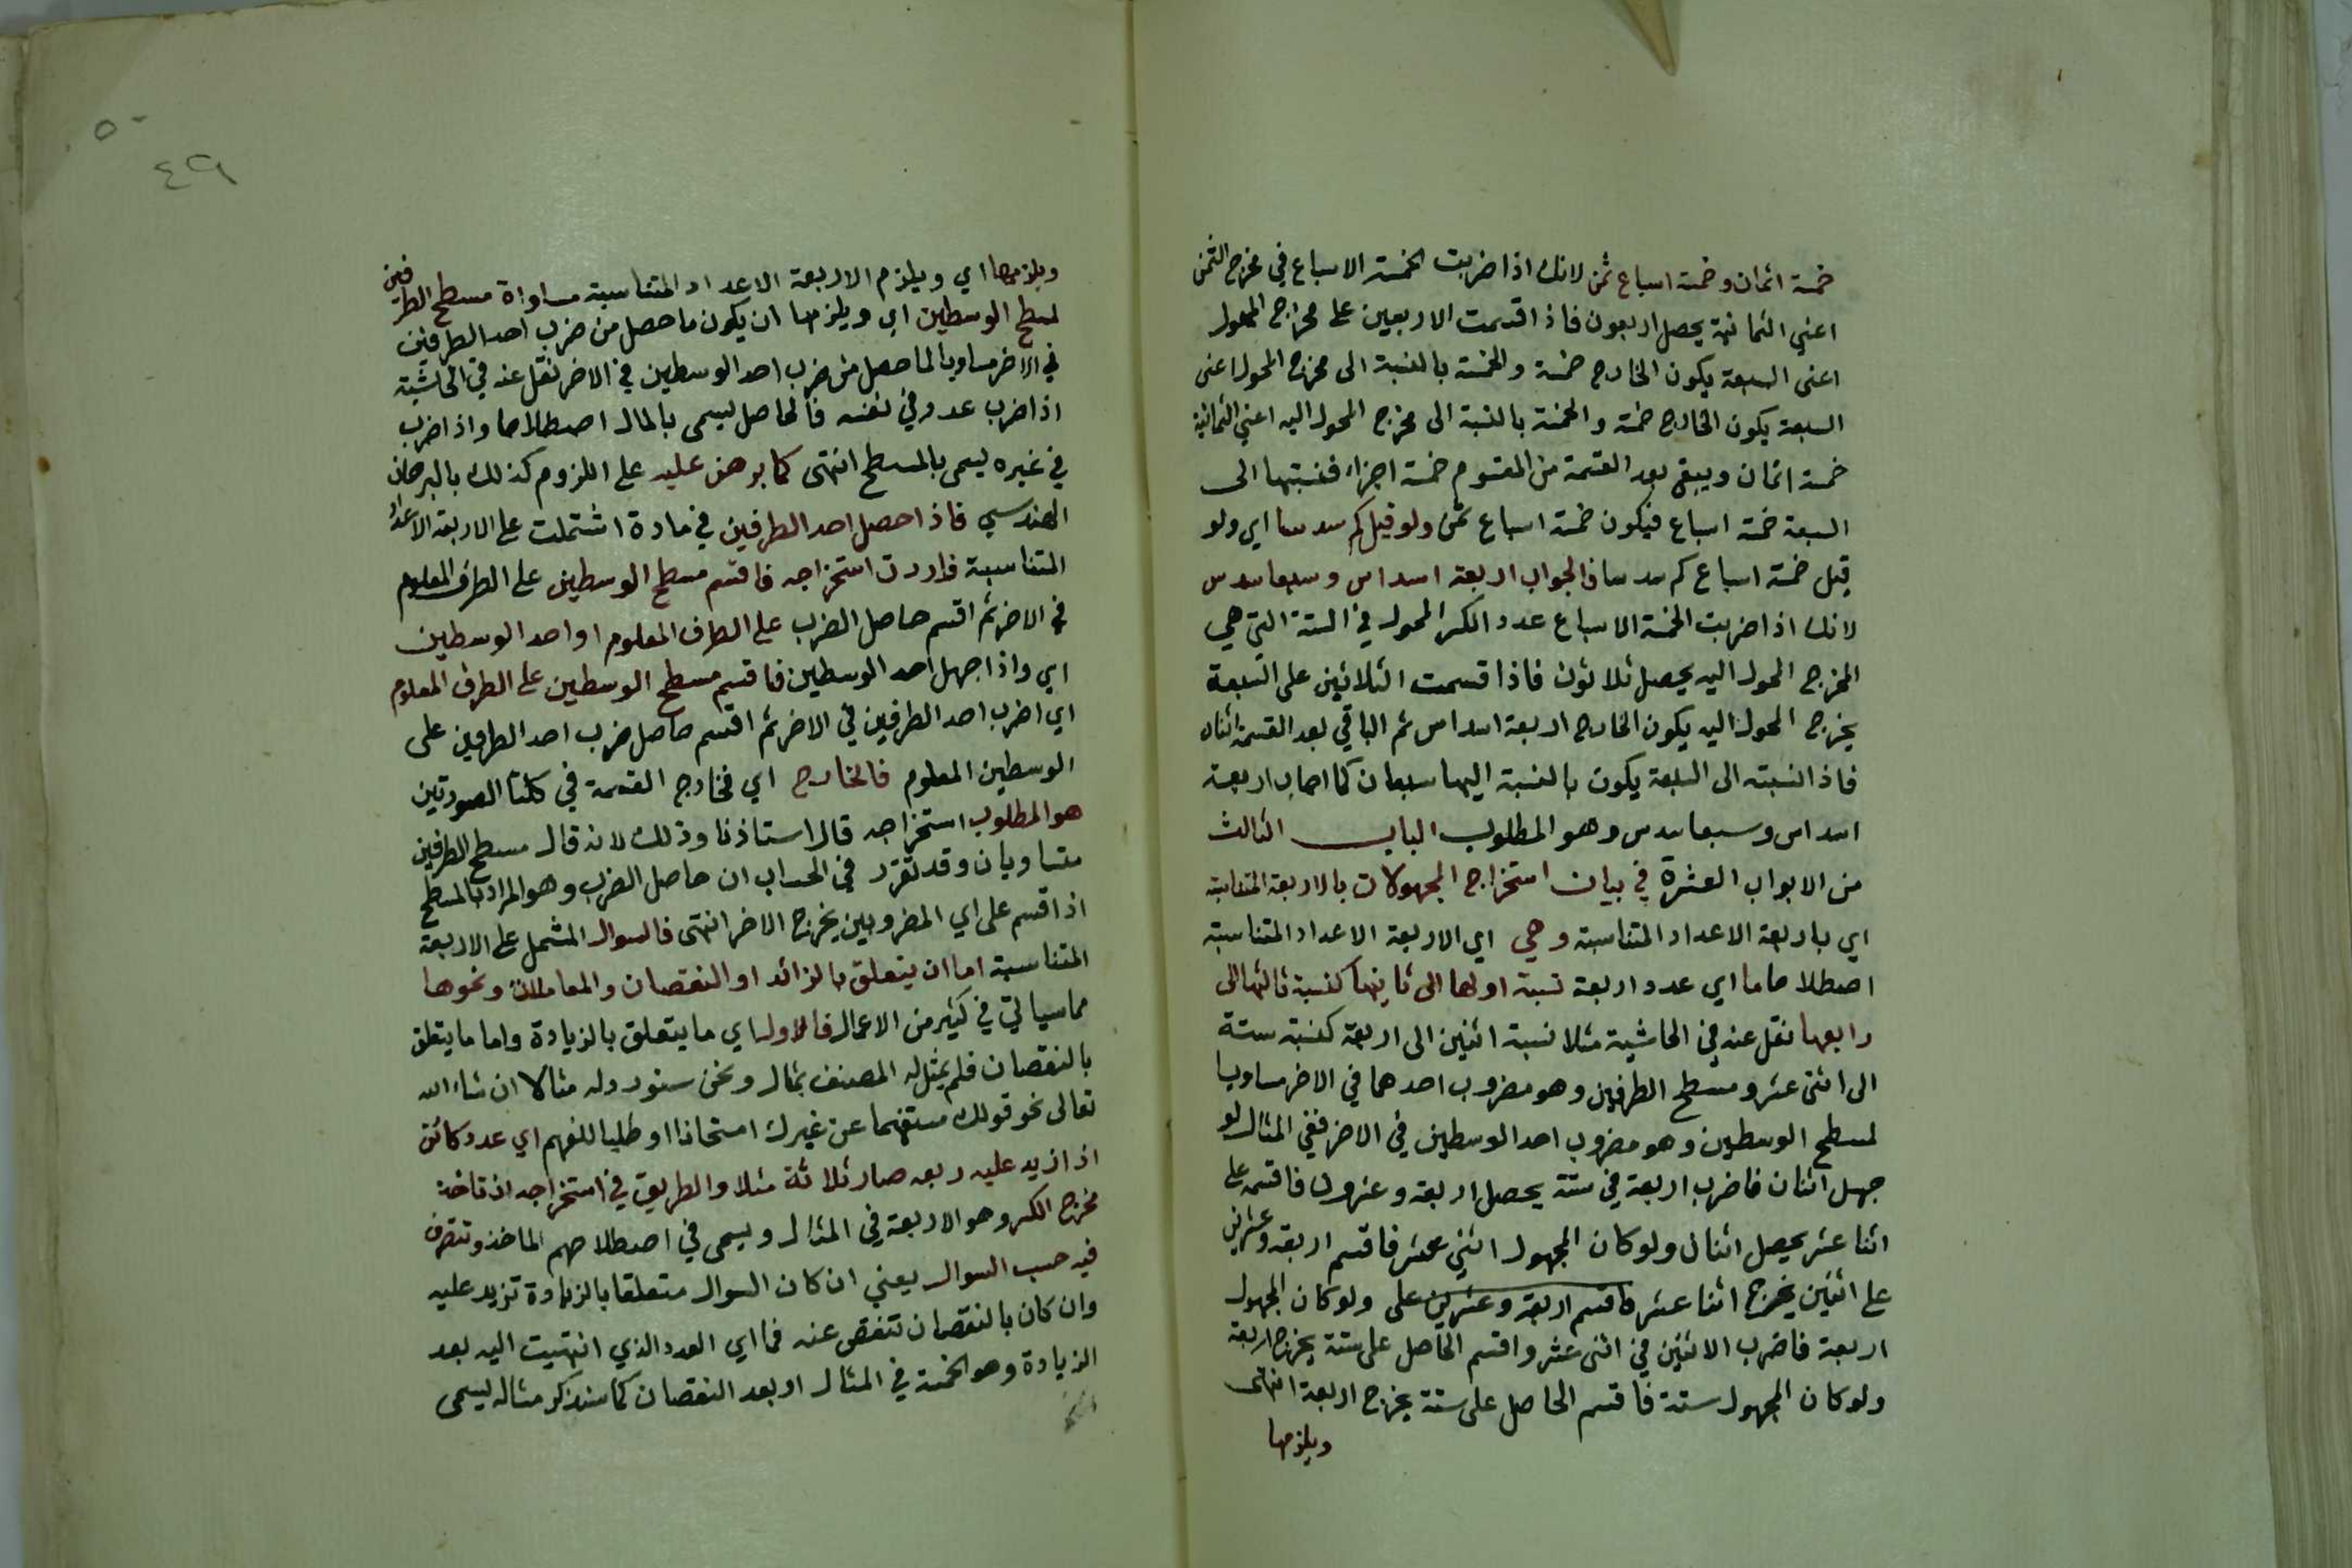 خمسة اثمان وخمسة اسباع ثمن لانك اذا ضربت الخمسة الاسباع في مخرج الثمن
اعني الثمانية يحصل اربعون فاذا قسمت الاربعين على مخرج المحول
اعنى السبعة يكون الخارج خمسة والخمسة بالنسبة الى مخرج المحول اعنى
السبعة يكون الخارج خمسة والخمسة بالنسبة الى مخرج المحول اليه اعني الثمانية
خمسة اثمان ويبقى بعد القسمة من المقسوم خمسة اجزاء فنسبتها الى
السبعة خمسة اسباع فيكون خمسة اسباع ثمن ولو قيل كم سدسا اي ولو
قيل خمسة اسباع كم سدسا فالجواب اربعة اسداس وسبعا سدس
لانك اذا ضربت الخمسة الاسباع عدد الكسر المحول في الستة التي هي
المخرج المحول اليه يحصل ثلاثون فاذا قسمت الثلاثين على السبعة
يخرج المحول اليه يكون الخارج اربعة اسداس ثم الباقي بعد القسمة اثنان
فاذا نسبته الى السبعة يكون بالنسبة اليها سبعان كما اجاب اربعة
اسداس وسبعا سدس وهو المطلوب الباب الثالث
من الابواب العشرة في بيان استخراج المجهولات بالاربعة المتناسبة
اي باربعة الاعداد المتناسبة وهي اي الاربعة الاعداد المتناسبة
اصطلاحا ما اي عدد اربعة نسبة اولها الى ثانيها كنسبة ثالثها الى
رابعها نقل عنه في الحاشية مثلا نسبة اثنين الى اربعة كنسبة ستة
الى اثنى عشر ومسطح الطرفين وهو مضروب احدهما في الاخر مساويا
لمسطح الوسطين وهو مضروب احد الوسطين في الاخر ففي المثال لو
جهل اثنان فاضرب اربعة في ستة يحصل اربعة وعشرون فاقسمه على
اثنا عشر يحصل اثنان ولو كان المجهول اثني عشر فاقسم اربعة وعشرين
على اثنين يخرج اثنا عشر فاقسم اربعة وعشرين على ولو كان المجهول
اربعة فاضرب الاثنين في اثنى عشر واقسم الحاصل على ستة يخرج اربعة
ولو كان المجهول ستة فاقسم الحاصل على ستة يخرج اربعة انتهى
ويلزمها
٥٠
٤٩
ويلزمها اي ويلزم الاربعة الاعداد المتناسبة مساواة مسطح الطرفين
لمسطح الوسطين اي ويلزمها ان يكون ما حصل من ضرب احد الطرفين
في الاخر مساويا لما حصل من ضرب احد الوسطين في الاخر نقل عنه في الحاشية
اذا ضرب عدد في نفسه فالحاصل يسمى بالمال اصطلاحا واذا ضرب
في غيره يسمى بالمسطح انتهى كما برهن عليه على اللزوم كذلك بالبرهان
الهندسي فاذا حصل احد الطرفين في مادة اشتملت على الاربعة الاعداد
المتناسبة فاردت استخراجه فاقسم مسطح الوسطين على الطرف المعلوم
في الاخر ثم اقسم حاصل الضرب على الطرف المعلوم او احد الوسطين
اي واذا جهل احد الوسطين فاقسم مسطح الوسطين على الطرف المعلوم
اي اضرب احد الطرفين في الاخر ثم اقسم حاصل ضرب احد الطرفين على
الوسطين المعلوم فالخارج اي فخارج القسمة في كلتا الصورتين
هو المطلوب استخراجه قال استاذنا وذلك لانه قال مسطح الطرفين
متساويان وقد تقرر في الحساب ان حاصل الضرب وهو المراد بالمسطح
اذا قسم على اي المضروبين يخرج الاخر انتهى فالسوال المشتمل على الاربعة
المتناسبة اما ان يتعلق بالزائد او النقصان والمعاملات ونحوها
مما سياتي في كثير من الاعمال فالاول اي ما يتعلق بالزيادة واما ما يتعلق
بالنقصان فلم يمثل له المصنف بمثال ونحن سنورد له مثالا ان شاء الله
تعالى نحو قولك مستفهما عن غيرك امتحانا او طلبا للفهم اي عدد كائن
اذا زيد عليه ربعه صار ثلاثة مثلا والطريق في استخراجه ان تاخذ
مخرج الكسر وهو الاربعة في المثال ويسمى في اصطلاحهم الماخذ وتتصرف
فيه حسب السوال يعني ان كان السوال متعلقا بالزيادة تزيد عليه
وان كان بالنقصان تنقص عنه فما اي العدد الذي انتهيت اليه بعد
الزيادة وهو الخمسة في المثال او بعد النقصان كما سنذكر مثاله يسمى